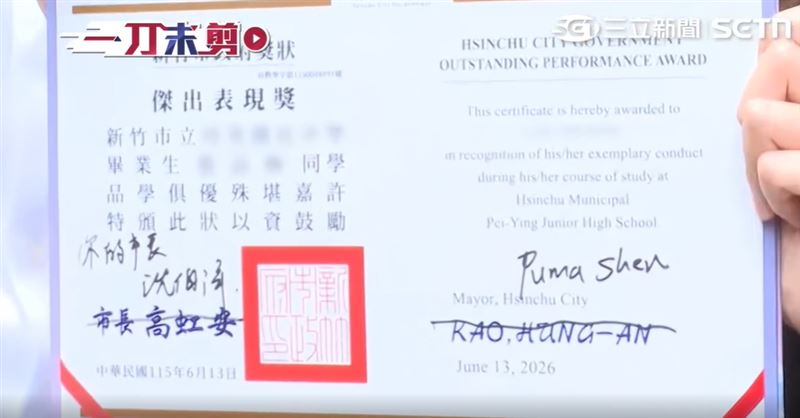 一刀未剪
三立新聞 SETN
新竹市政府獎狀
傑出表現獎
新竹市立
畢業生 同學
品學俱優殊堪嘉許
特頒此狀以資鼓勵
你的市長
沈伯洋
市長 高虹安
新竹市政府印
中華民國115年6月13日
HSINCHU CITY GOVERNMENT
OUTSTANDING PERFORMANCE AWARD
This certificate is hereby awarded to
in recognition of his/her exemplary conduct
during his/her course of study at
Hsinchu Municipal
Pei-Ying Junior High School.
Puma Shen
Mayor, Hsinchu City
KAO, HUNG-AN
June 13, 2026